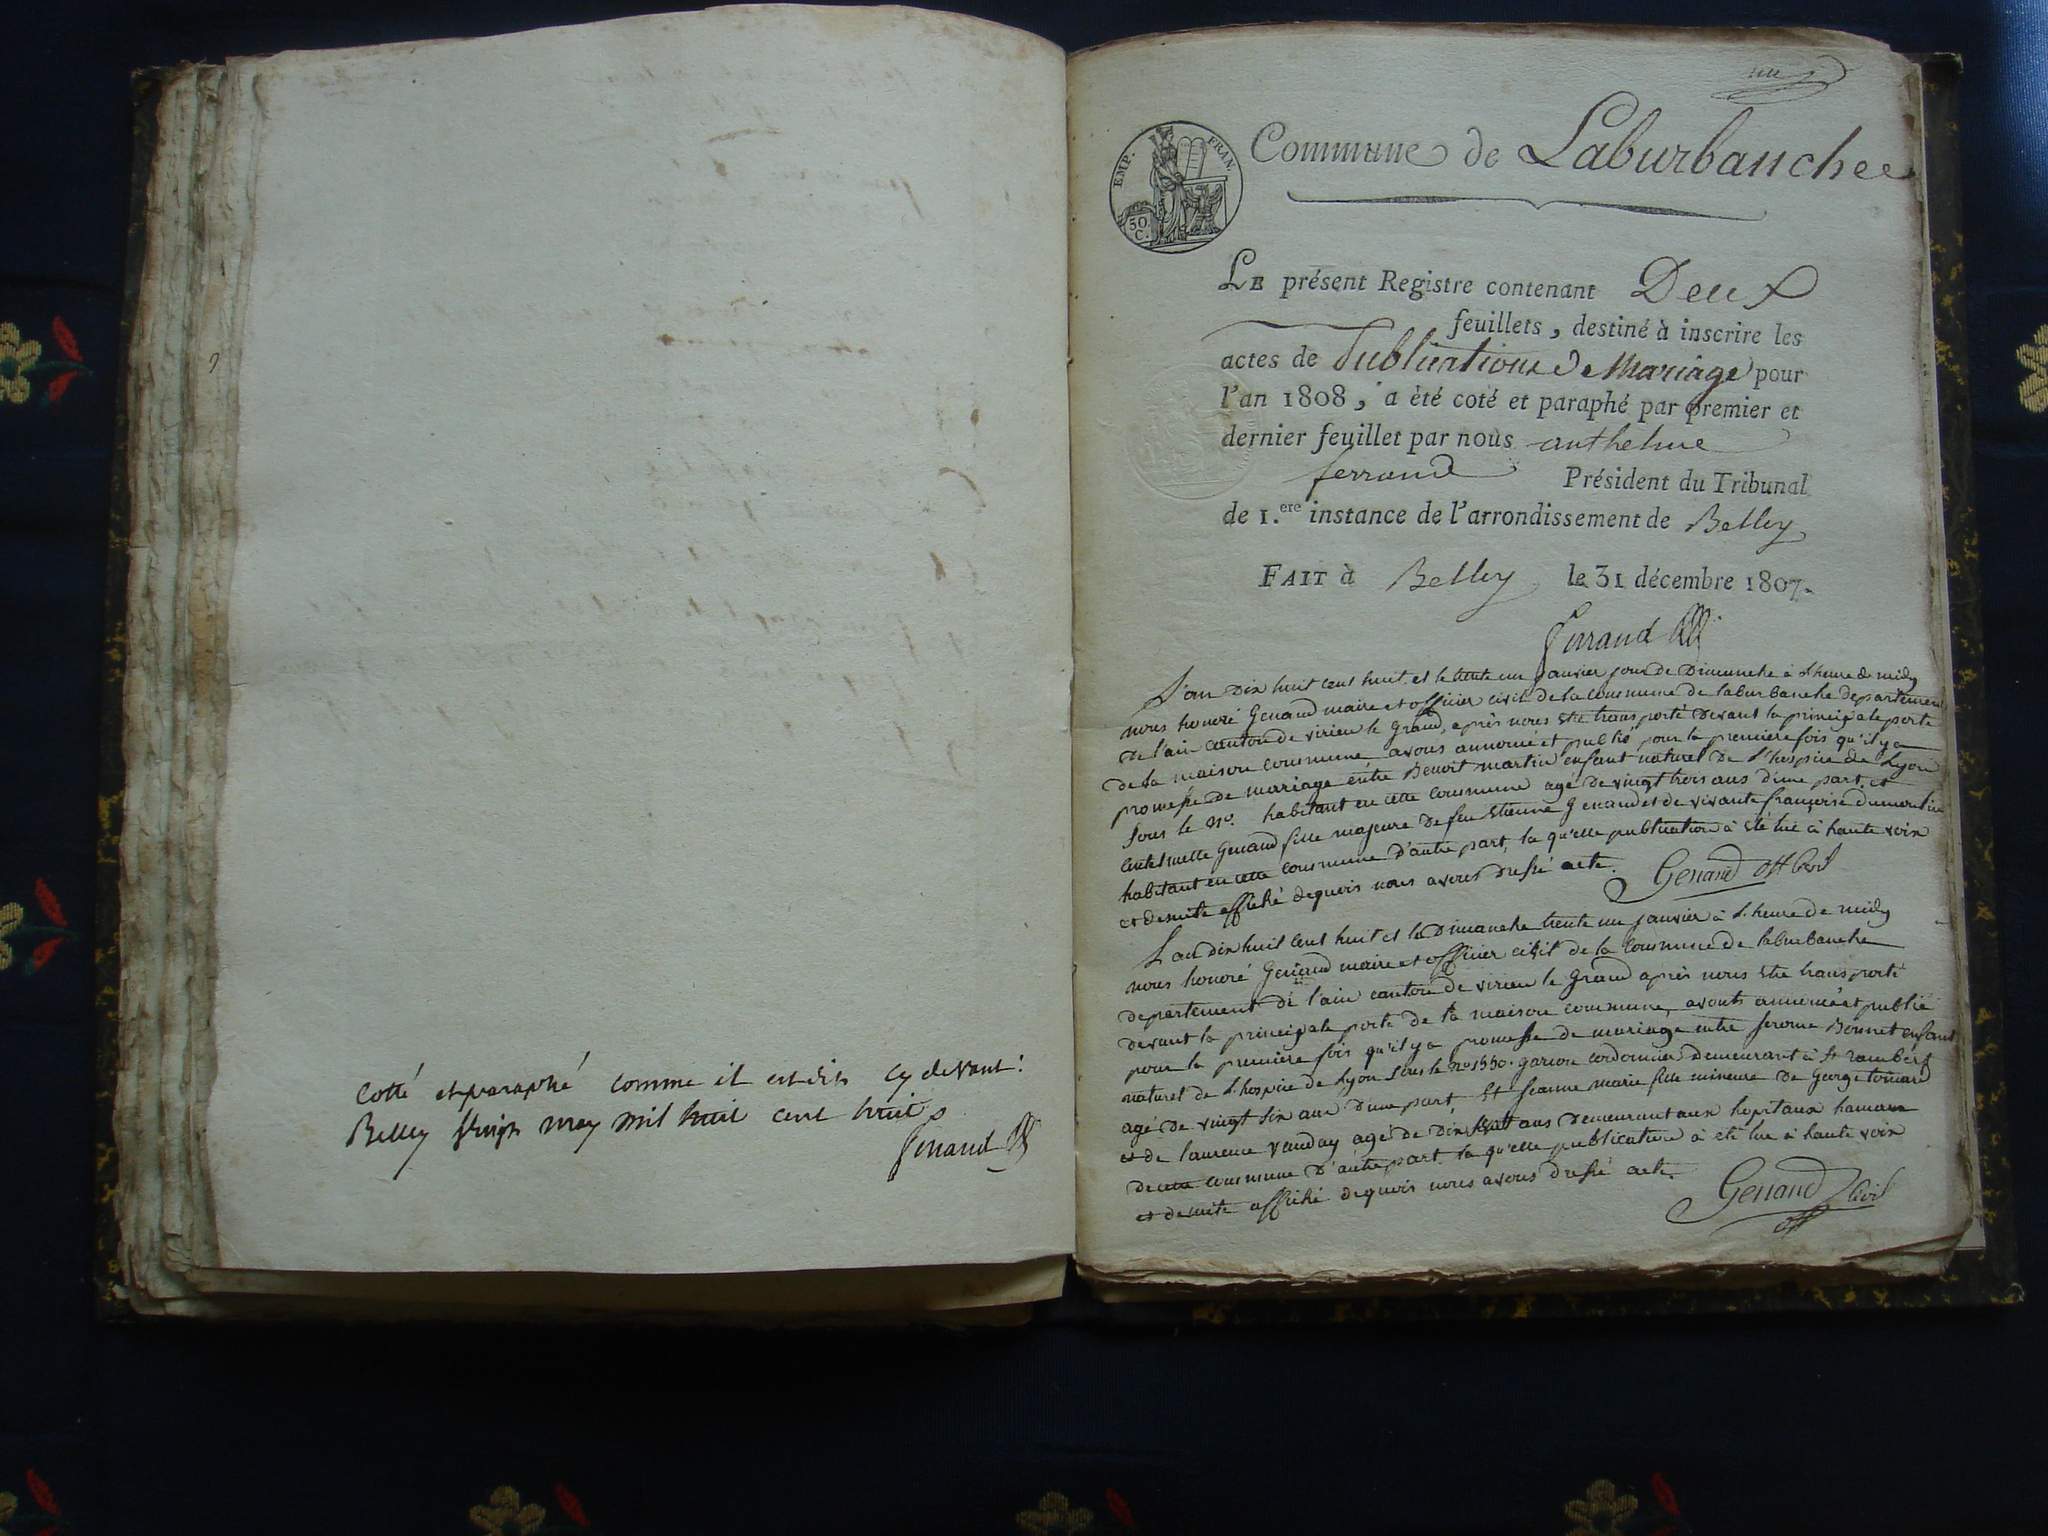 Cotté et paraphé comme il est dit cy devant :
Belley le vingt may mil huit cent huit
ferrand
un
EMP. FRAN.
50 C.
Commune de Laburbanche
LE présent Registre contenant Deux
feuillets, destiné à inscrire les
actes de Publications de Mariage pour
l'an 1808, a été coté et paraphé par premier et
dernier feuillet par nous anthelme
ferrand Président du Tribunal
de 1.ere instance de l'arrondissement de Belley
FAIT à Belley le 31 décembre 1807.
ferrand
L'an dix huit cent huit et le trente un janvier jour de Dimanche à l'heure de midy
nous honoré Genaud maire et officier civil de la commune de laburbanche departement
de l'ain canton de virieu le grand, après nous etre transporté devant la principale porte
de la maison commune avons annoncé et publié pour la premiere fois qu'il y a
promesse de mariage entre Benoit martin enfant naturel de l'hospice de Lyon
sous le n°. habitant en cette commune agé de vingt trois ans d'une part, et
Genaud fille majeure de feu Etienne Genaud et de vivante françoise dumoulin
habitant en cette commune d'autre part, la qu'elle publication à été lue à haute voix
et de suite affiché de quoi nous avons dressé acte. Genaud off Civil
L'an dix huit cent huit et le Dimanche trente un janvier à l'heure de midy
nous honoré Genaud maire et officier civil de la commune de laburbanche
departement de l'ain canton de virieu le grand après nous etre transporté
devant la principale porte de la maison commune, avons annoncé et publié
pour la premiere fois qu'il y a promesse de mariage entre Jerome Bonnet enfant
naturel de l'hospice de Lyon sous le n° 1550. garcon cordonnier demeurant à St rambert
agé de vingt six ans d'une part Et Jeanne marie fille mineure de George
et de laurence vauday agé de dix ans demeurant aux hopitaux hameau
de cette commune d'autre part la qu'elle publication à été lue à haute voix
et de suite affiché de quoi nous avons dressé acte.
Genaud off Civil